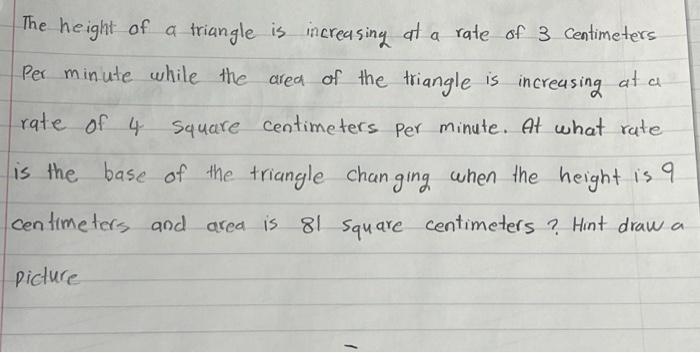 The height of a triangle is increasing at a rate of 3 Centimeters
Per minute while the area of the triangle is increasing at a
rate of 4 Square centimeters per minute. At what rate
is the base of the triangle changing when the height is 9
centimeters and area is 81 square centimeters ? Hint draw a
picture